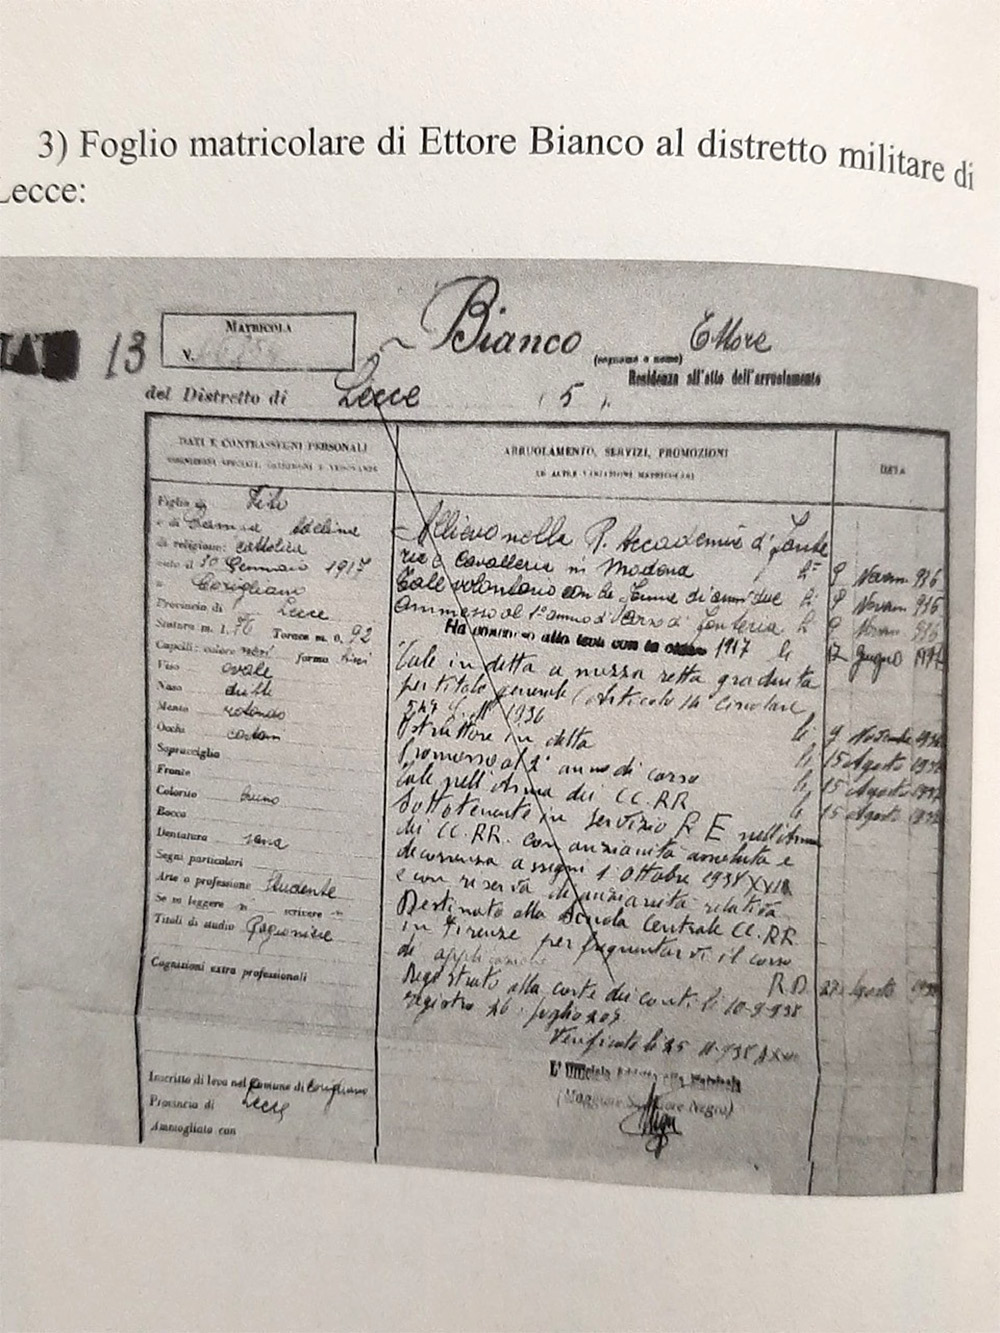 3) Foglio matricolare di Ettore Bianco al distretto militare di
Lecce:
13
MATRICOLA
N.
Bianco Ettore
(cognome e nome)
Residenza all'atto dell'arruolamento
del Distretto di Lecce (5)
DATI E CONTRASSEGNI PERSONALI
ARRUOLAMENTO, SERVIZI, PROMOZIONI
ED ALTRE VARIAZIONI MATRICOLARI
DATA
Figlio di Vito
e di Adelina
di religione: cattolica
nato il 30 Gennaio 1917
a Corigliano
Provincia di Lecce
Statura m. 1,76 Torace m. 0,92
Capelli: colore neri forma lisci
Viso ovale
Naso
Mento rotondo
Occhi castani
Sopracciglia
Fronte
Colorito bruno
Bocca
Dentatura sana
Segni particolari
Arte o professione Studente
Se sa leggere si scrivere si
Titoli di studio Ragioniere
Cognizioni extra professionali
Inscritto di leva nel Comune di Corigliano
Provincia di Lecce
Ammogliato con
Allievo nella R. Accademia di Fante
ria e Cavalleria in Modena li 9 Novem 936
Tale volontario con la ferma di anni due li 9 Novem 936
Ammesso al 1° anno di corso di fanteria li 9 Novem 936
Ha concorso alla leva con la classe 1917 li 12 Giugno
Tale in detta a mezza retta gratuita
per titolo generale (Articolo 14 Circolare
1936 li 9 Novembre
Istruttore in detta li 15 Agosto
Promosso al 2° anno di corso li 15 Agosto
Tale nell'Arma dei CC.RR li 15 Agosto
Sottotenente in servizio R E nell'Arma
dei CC.RR. con anzianità assoluta e
decorrenza assegni 1 Ottobre 1938
e con riserva di anzianità relativa
Destinato alla Scuola Centrale CC.RR
in Firenze per frequentarvi il corso
di applicazione R.D. Agosto
Registrato alla corte dei conti li 10-9-938
registro 26 foglio 209
Verificato li 25 11-938
L'Ufficiale Addetto alla Matricola
(Maggiore Negro)